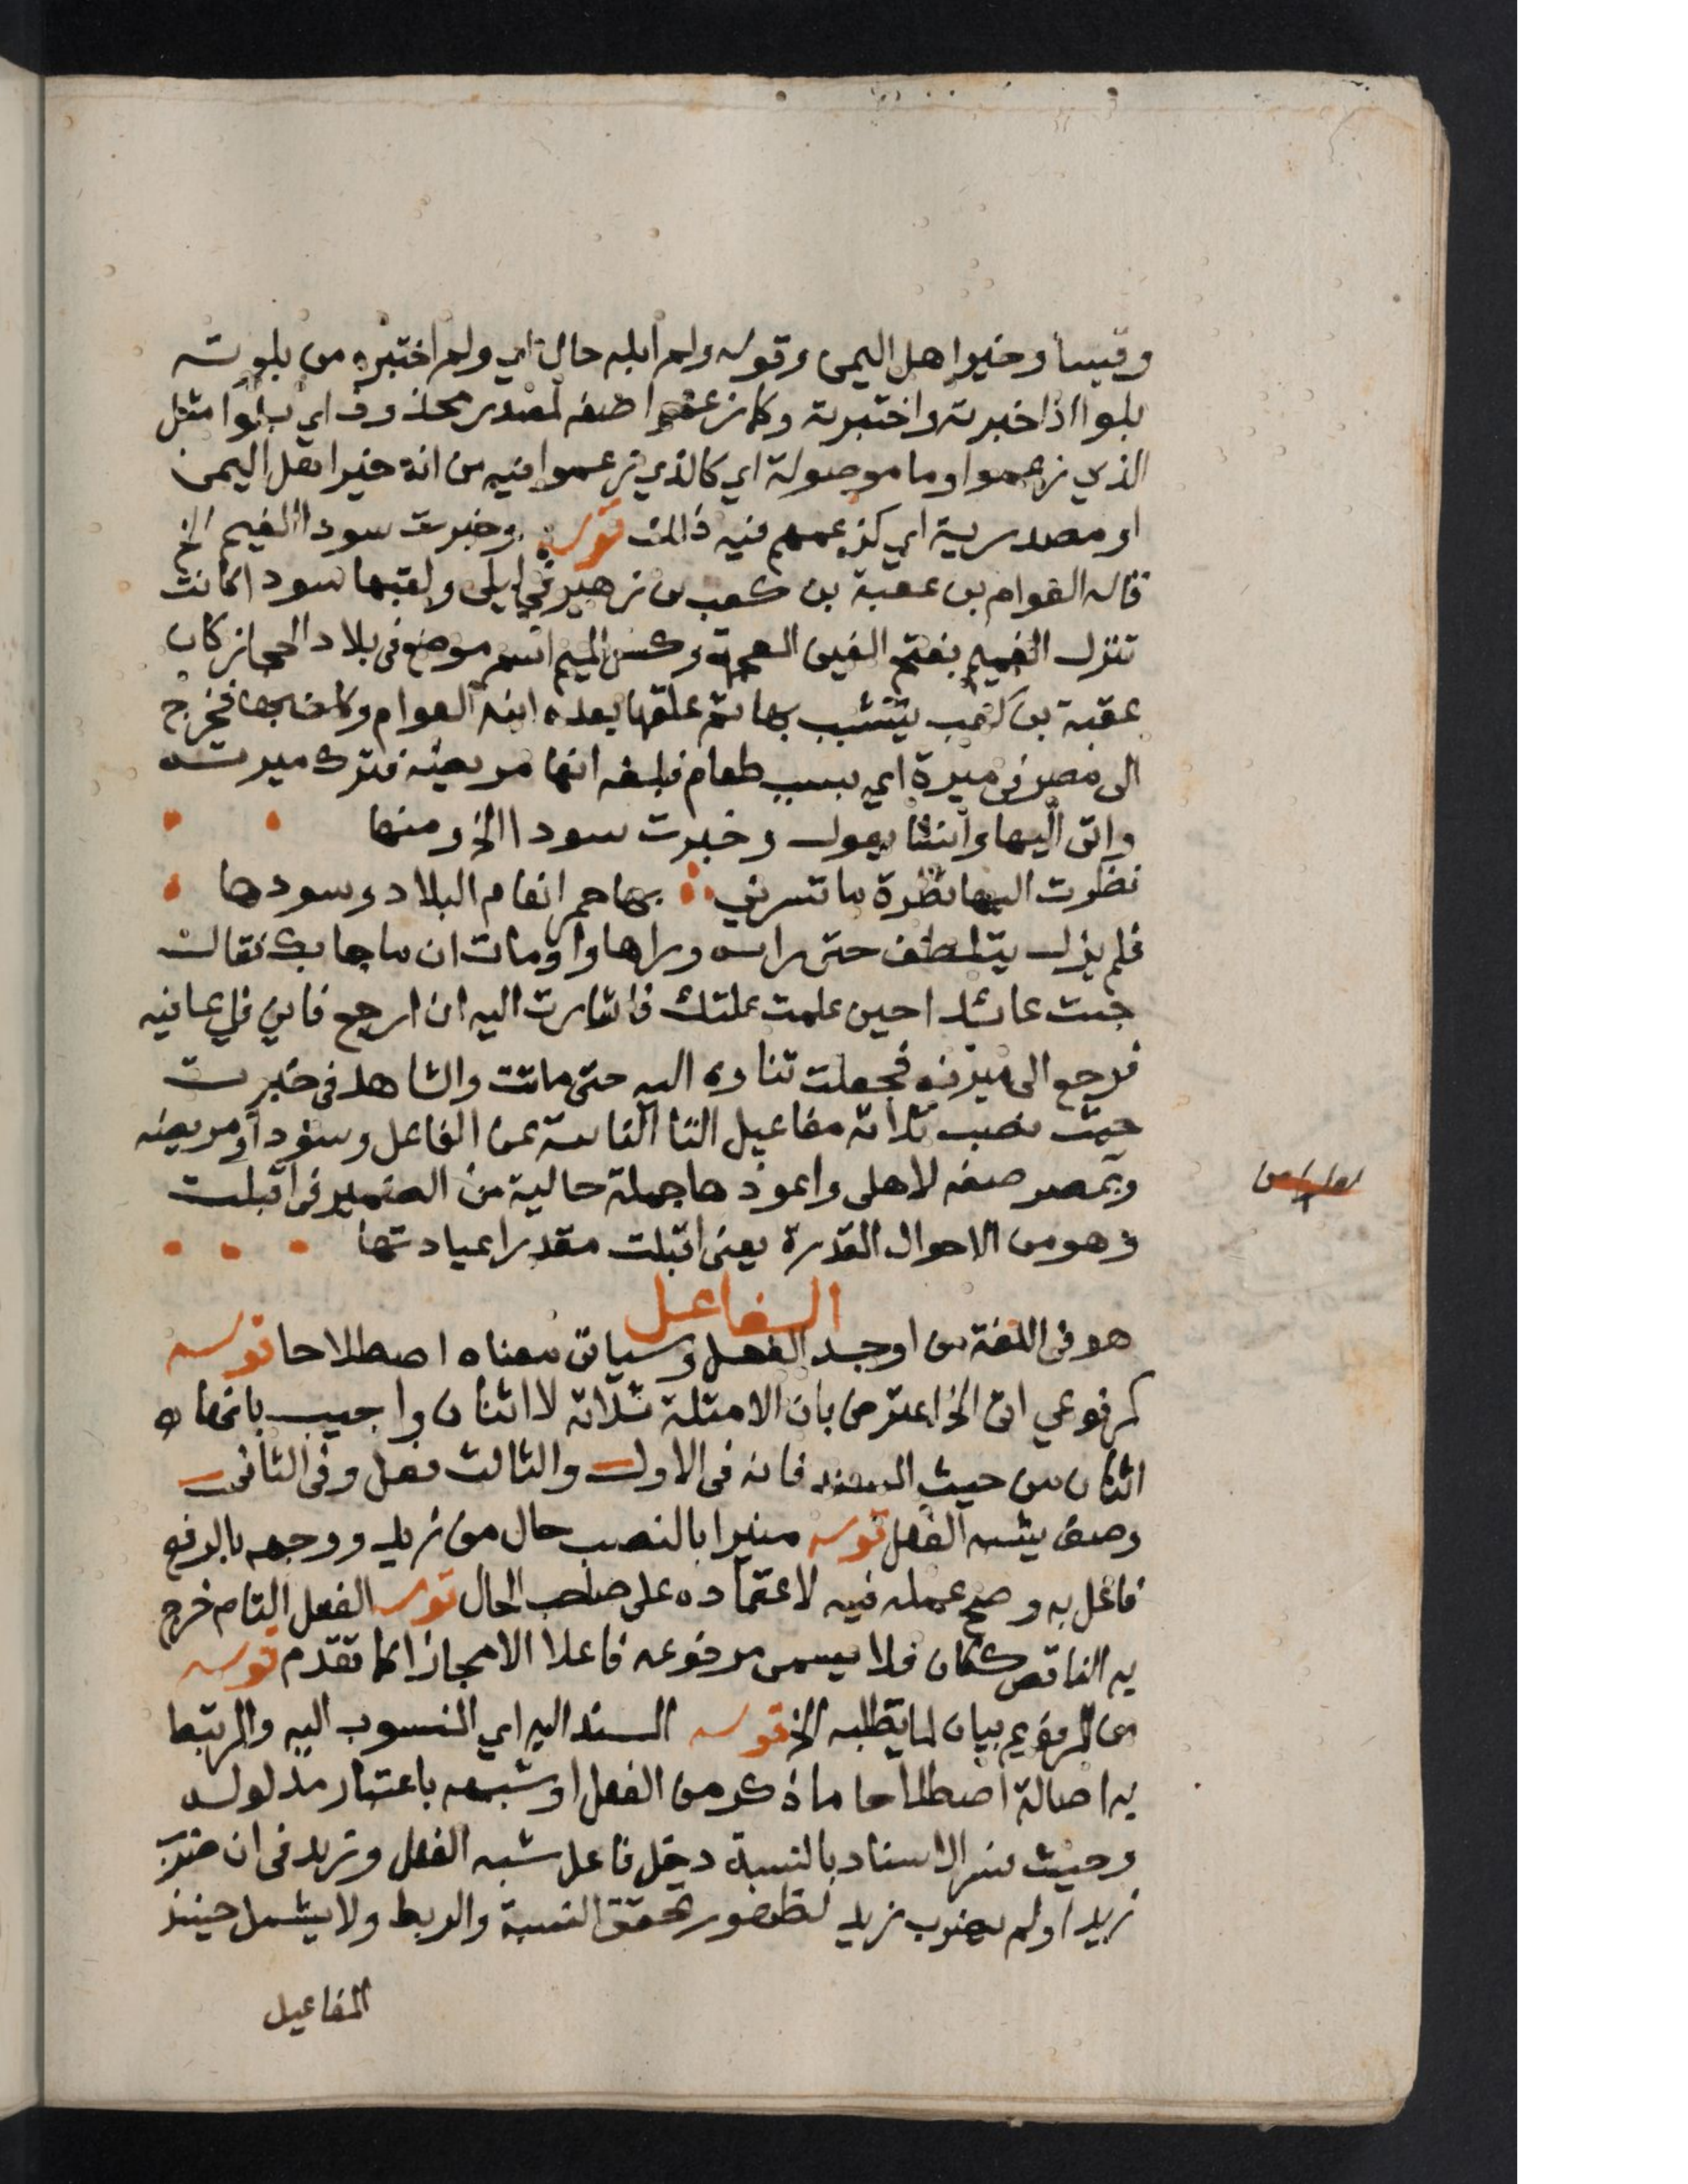 وقيسا وخيرا هل اليمن وقوله ولم ابله حال اي ولم اختبره من بلوته
بلوا اذا خبرته واختبرته وكما زعموا صفة لمصدر محذوف اي بلوا مثل
الذي زعموا وما موصولة اي كالذي زعموا فيه من انه خير اهل اليمن
او مصدرية اي كزعمهم فيه ذالك قوله وخبرت سودا الغيم الخ
قاله العوام بن عقبة بن كعب بن زهير في ليلى ولقبها سودا كانت
تنزل الغميم بفتح الغين المعجمة وكسر الميم اسم موضع فى بلاد الحجاز كان
عقبة بن كعب يتشبب بها ثم علقها بعده ابنه العوام وكلف بها فخرج
الى مصر فى ميرة اي بسبب طعام فبلغه انها مريضة فترك ميرته
واتى اليها وانشا يقول وخبرت سودا الخ ومنها
نظرت اليها نظرة ما تسرني بها حمر انعام البلاد وسودها
فلم يزل يتلطف حتى راته وراها واومات ان ما جا بك فقال
جيت عائدا حين علمت علتك فاشارت اليه ان ارجع فاني في عافيه
فرجع الى ميرته فجعلت تناوه اليه حتى ماتت والشاهد فى خبرت
حيث نصب ثلاثة مفاعيل التا النائبة عن الفاعل وسودا ومريضه
وبمصر صفه لاهلى واعودها جملة حالية من الضمير فى اقبلت
وهو من الاحوال المقدرة يعنى اقبلت مقدرا عيادتها
الفاعل
هو فى اللغة من اوجد الفعل وسياتى معناه اصطلاحا قوله
كمرفوعي اتى الخ اعترض بان الامثلة ثلاثة لا اثنان واجيب بانها
اثنان من حيث المسند فانه فى الاول والثالث فعل وفى الثانى
وصف يشبه الفعل قوله منيرا بالنصب حال من زيد ووجهه بالرفع
فاعل به وصح عمله فيه لاعتماده على صاحب الحال قوله الفعل التام خرج
به الناقص ككان فلا يسمى مرفوعه فاعلا الا مجازا كما تقدم قوله
من المرفوع بيان لما يتطلبه الخ قوله المسند اليه اي المنسوب اليه والمرتبط
به اصالة اصطلاحا ما ذكر من الفعل او شبهه باعتبار مدلوله
وحيث فسر الاسناد بالنسبة دخل فاعل شبه الفعل وزيد فى ان ضرب
زيد او لم يضرب زيد لظهور تحقق النسبة والربط ولا يشمل حينئذ
المفاعيل